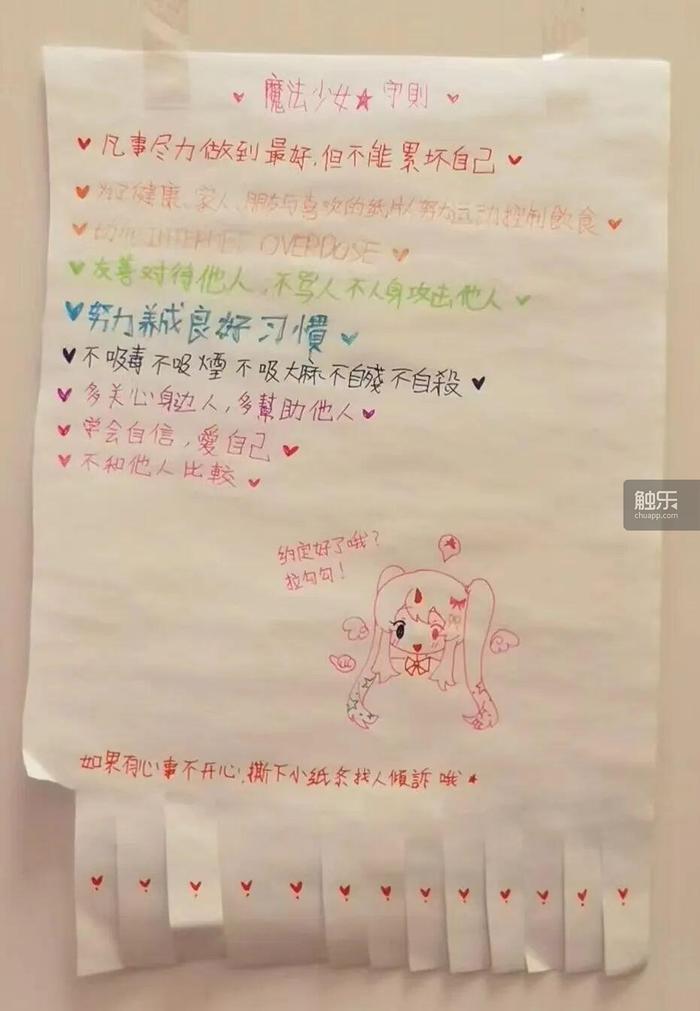 魔法少女★守則
凡事尽力做到最好,但不能累坏自己
为了健康、家人、朋友与喜欢的纸片人努力运动控制飲食
切勿INTERNET OVERDOSE
友善对待他人,不骂人不人身攻击他人
努力养成良好习慣
不吸毒不吸煙不吸大麻不自殘不自殺
多关心身边人,多幫助他人
学会自信,愛自己
不和他人比較
约定好了哦?
拉勾勾!
如果有心事不开心,撕下小紙条找人傾訴哦★
触乐
chuapp.com